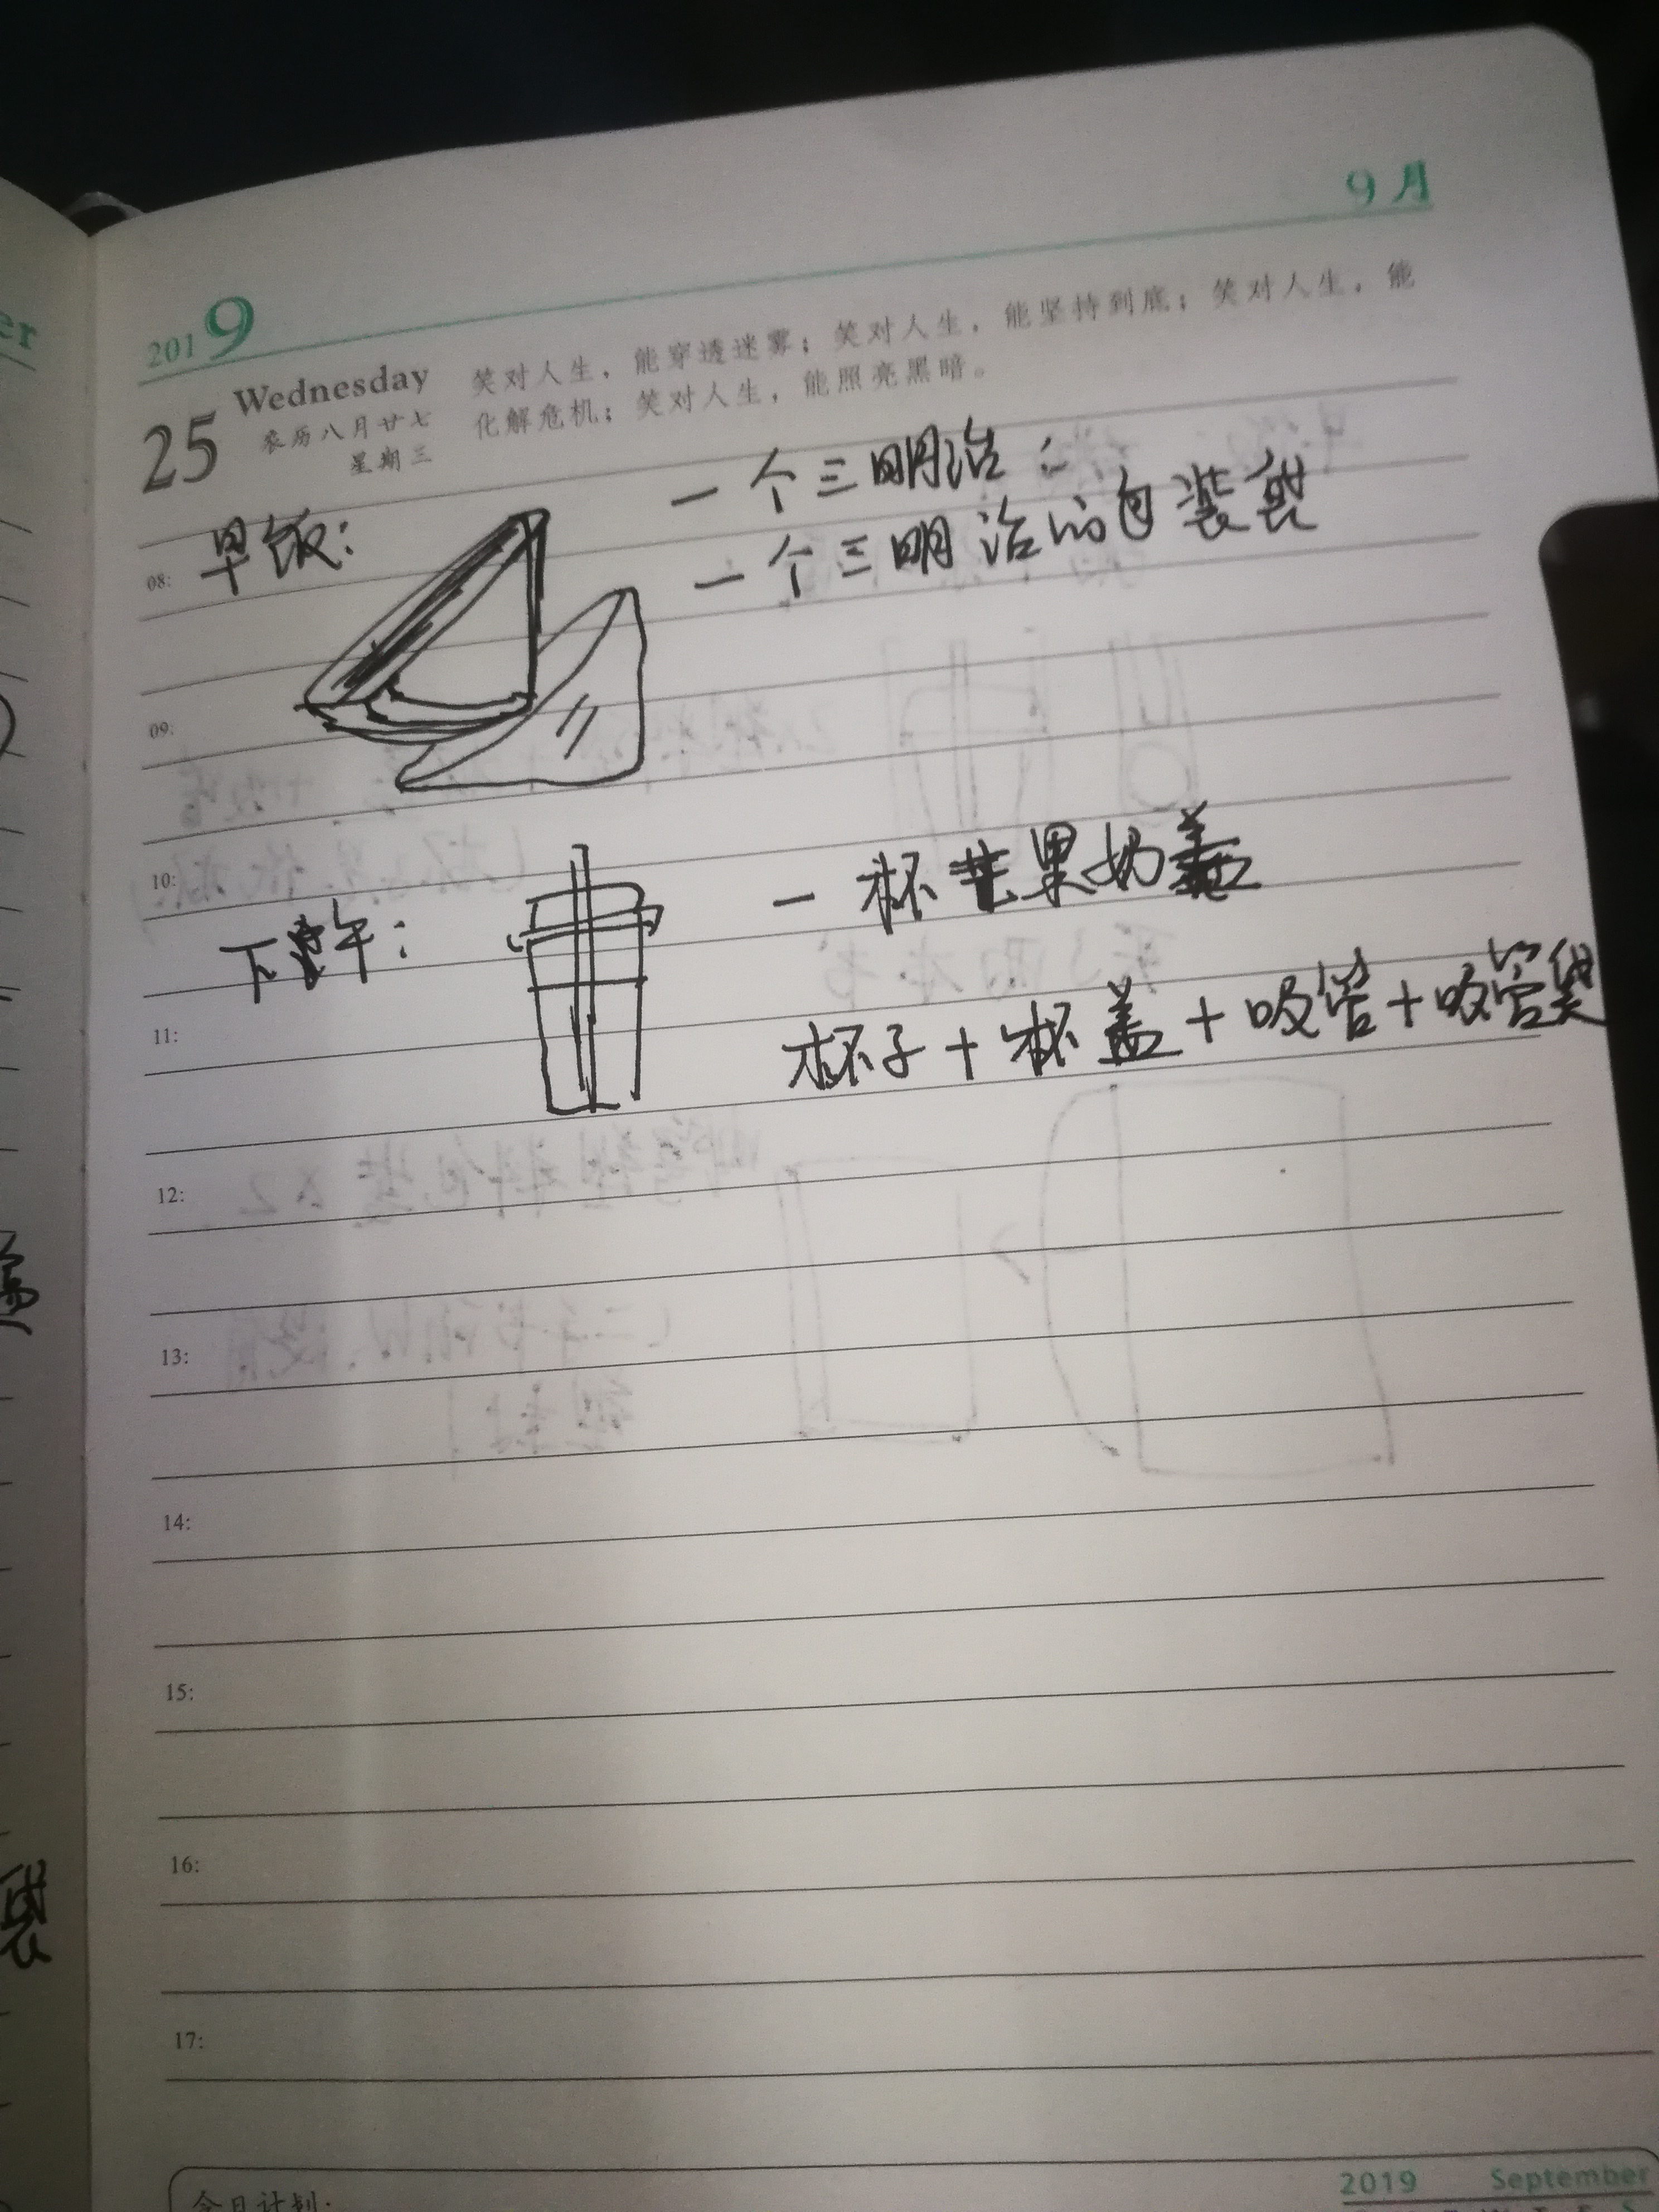 9月
2019
25 Wednesday
农历八月廿七
星期三
笑对人生，能穿透迷雾；笑对人生，能坚持到底；笑对人生，能
化解危机；笑对人生，能照亮黑暗。
早饭：
一个三明治：
一个三明治的包装袋
08:
09:
10:
下午：
一杯苹果奶盖
杯子+杯盖+吸管+吸管袋
11:
12:
13:
14:
15:
16:
17:
今日计划:
2019 September